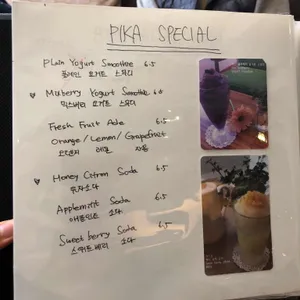 PIKA SPECIAL
Plain Yogurt Smoothie 6.5
플레인 요거트 스무디
♥ Mixberry Yogurt Smoothie 6.5
믹스베리 요거트 스무디
Fresh Fruit Ade 6.5
Orange / Lemon / Grapefruit
오렌지 레몬 자몽
♥ Honey Citron Soda 6.5
유자소다
Applemint Soda 6.5
애플민트 소다
Sweet berry Soda 6.5
스위트베리 소다